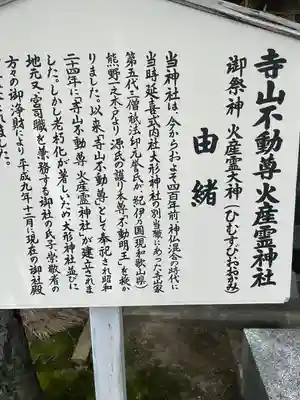 寺山不動尊火産霊神社
御祭神 火産霊大神(ひむすびおおかみ)
由緒
当神社は、今からおよそ四百年前神仏混合の時代に
当時延喜式内社大形神社の別当寮にあった寺山家
第五代の僧祇法印元誉氏が、紀伊乃国(現和歌山県)
熊野一之木乃より源氏の護り本尊「不動明王」を授か
りました。以来「寺山不動尊」として奉祀され昭和
二十四年に「寺山不動尊 火産霊神社」が建立されま
した。しかし老朽化が著しいため大形神社並びに
地元又宮司職を兼務する御社の氏子崇敬者の
方々の御浄財により平成九年十二月に現在の御社殿